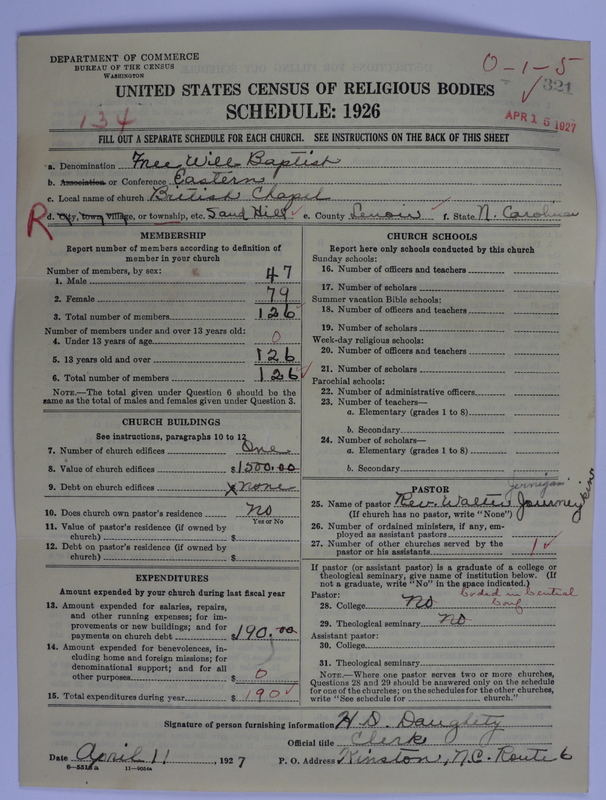 DEPARTMENT OF COMMERCE
BUREAU OF THE CENSUS
WASHINGTON
0-1-5
321
UNITED STATES CENSUS OF RELIGIOUS BODIES
SCHEDULE: 1926
134
APR 16 1927
FILL OUT A SEPARATE SCHEDULE FOR EACH CHURCH. SEE INSTRUCTIONS ON THE BACK OF THIS SHEET
a. Denomination Free Will Baptist
b. Association or Conference Eastern
c. Local name of church British Chapel
R d. City, town village, or township, etc. Sand Hill e. County Lenoir f. State N. Carolina
MEMBERSHIP
Report number of members according to definition of
member in your church
Number of members, by sex:
1. Male 47
2. Female 79
3. Total number of members 126
Number of members under and over 13 years old:
4. Under 13 years of age 0
5. 13 years old and over 126
6. Total number of members 126
NOTE.—The total given under Question 6 should be the
same as the total of males and females given under Question 3.
CHURCH BUILDINGS
See instructions, paragraphs 10 to 12
7. Number of church edifices One
8. Value of church edifices $1500.00
9. Debt on church edifices none
10. Does church own pastor's residence? No
Yes or No
11. Value of pastor's residence (if owned by
church) $
12. Debt on pastor's residence (if owned by
church) $
EXPENDITURES
Amount expended by your church during last fiscal year
13. Amount expended for salaries, repairs,
and other running expenses; for im-
provements or new buildings; and for
payments on church debt $190.00
14. Amount expended for benevolences, in-
cluding home and foreign missions; for
denominational support; and for all
other purposes $ 0
15. Total expenditures during year $ 190
CHURCH SCHOOLS
Report here only schools conducted by this church
Sunday schools:
16. Number of officers and teachers
17. Number of scholars
Summer vacation Bible schools:
18. Number of officers and teachers
19. Number of scholars
Week-day religious schools:
20. Number of officers and teachers
21. Number of scholars
Parochial schools:
22. Number of administrative officers
23. Number of teachers—
a. Elementary (grades 1 to 8)
b. Secondary
24. Number of scholars—
a. Elementary (grades 1 to 8)
b. Secondary
PASTOR
Jernigan
25. Name of pastor Rev. Walter Journeykins
(If church has no pastor, write "None")
26. Number of ordained ministers, if any, em-
ployed as assistant pastors
27. Number of other churches served by the
pastor or his assistants 1
If pastor (or assistant pastor) is a graduate of a college or
theological seminary, give name of institution below. (If
not a graduate, write "No" in the space indicated.)
Pastor: Coded in Central
28. College No Conf
29. Theological seminary No
Assistant pastor:
30. College
31. Theological seminary
NOTE.—Where one pastor serves two or more churches,
Questions 28 and 29 should be answered only on the schedule
for one of the churches; on the schedules for the other churches,
write "See schedule for church."
Signature of person furnishing information H D. Daughety
Official title Clerk
Date April 11, 1927 P. O. Address Kinston, N.C. Route 6
11—9054a